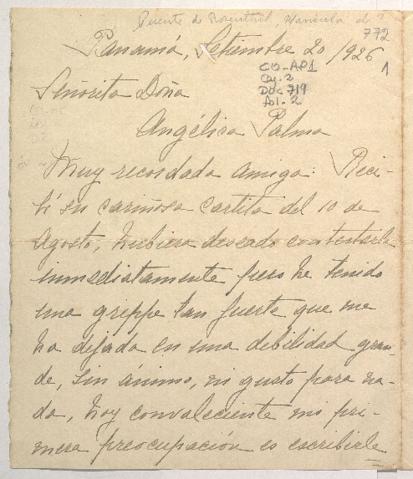 Puente de Rosenthal, Manuela de?
772
Panamá, Setiembre 20/926
CO-AP1
Cj. 2
Doc 719
fol. 2
1
Señorita Doña
Angélica Palma
Muy recordada amiga: Reci-
bí su cariñosa cartita del 10 de
Agosto, hubiera deseado contestarla
inmediatamente pero he tenido
una grippe tan fuerte que me
ha dejado en una debilidad gran-
de, sin ánimo, ni gusto para na-
da, hoy convaleciente mi pri-
mera preocupación es escribirle